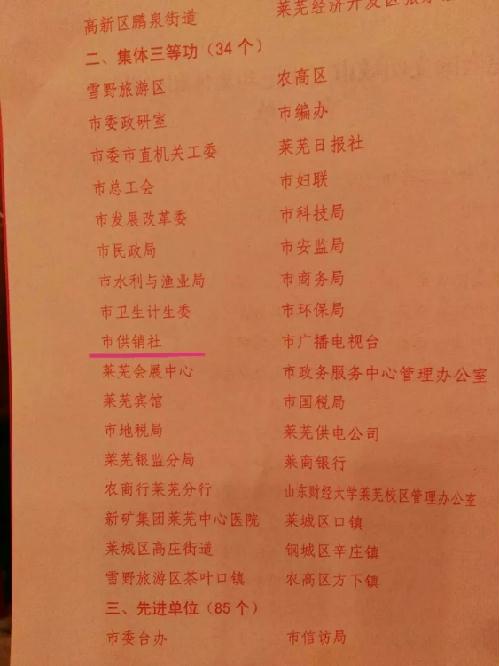 高新区鹏泉街道 莱芜经济开发区张家
二、集体三等功（34个）
雪野旅游区 农高区
市委政研室 市编办
市委市直机关工委 莱芜日报社
市总工会 市妇联
市发展改革委 市科技局
市民政局 市安监局
市水利与渔业局 市商务局
市卫生计生委 市环保局
市供销社 市广播电视台
莱芜会展中心 市政务服务中心管理办公室
莱芜宾馆 市国税局
市地税局 莱芜供电公司
莱芜银监分局 莱商银行
农商行莱芜分行 山东财经大学莱芜校区管理办公室
新矿集团莱芜中心医院 莱城区口镇
莱城区高庄街道 钢城区辛庄镇
雪野旅游区茶叶口镇 农高区方下镇
三、先进单位（85个）
市委台办 市信访局